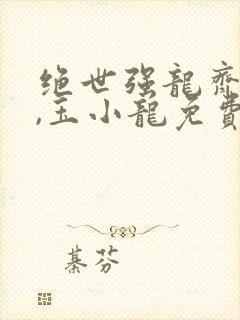 绝世强龍齊
,王小龍免費
綦芬